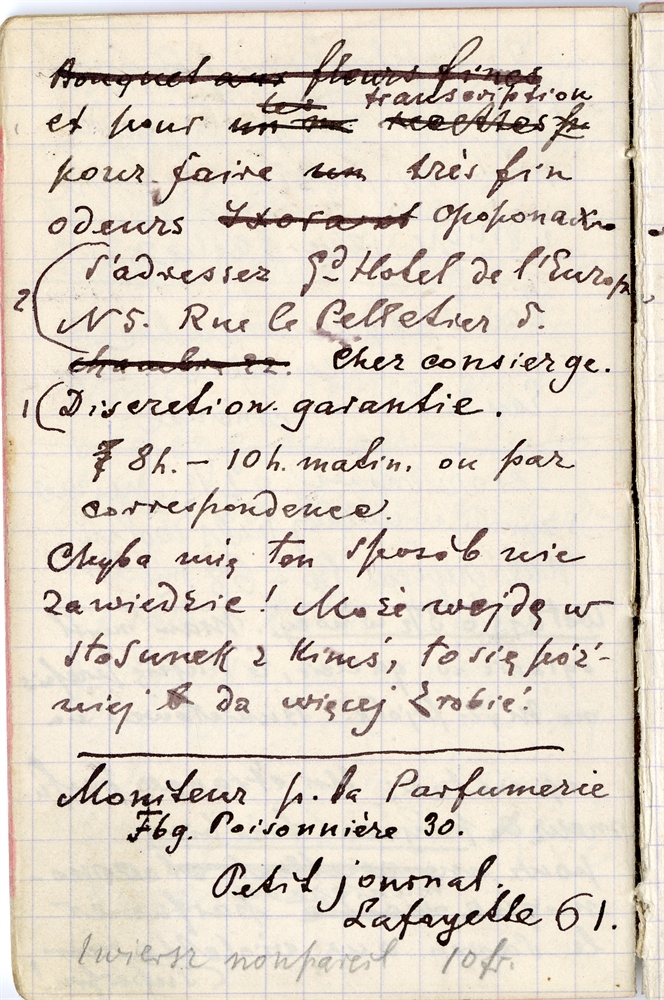 Bouquet aux fleurs fines
les transcription
et pour un recettes
pour faire un très fin
odeurs Ixora et opoponax
S'adresser Gd Hotel de l'Europe
2 N 5. Rue le Pelletier 5.
chambre 22. Chez consierge.
1 Discretion garantie.
8h. – 10h. matin. ou par
correspondence.
Chyba mię ten sposób nie
zawiedzie! Może wejdę w
stosunek z kimś, to się póź-
niej da więcej zrobić!
Moniteur p. la Parfumerie
Fbg. Poisonnière 30.
Petit journal.
Lafayette 61.
1 wiersz nonpareil 10 fr.